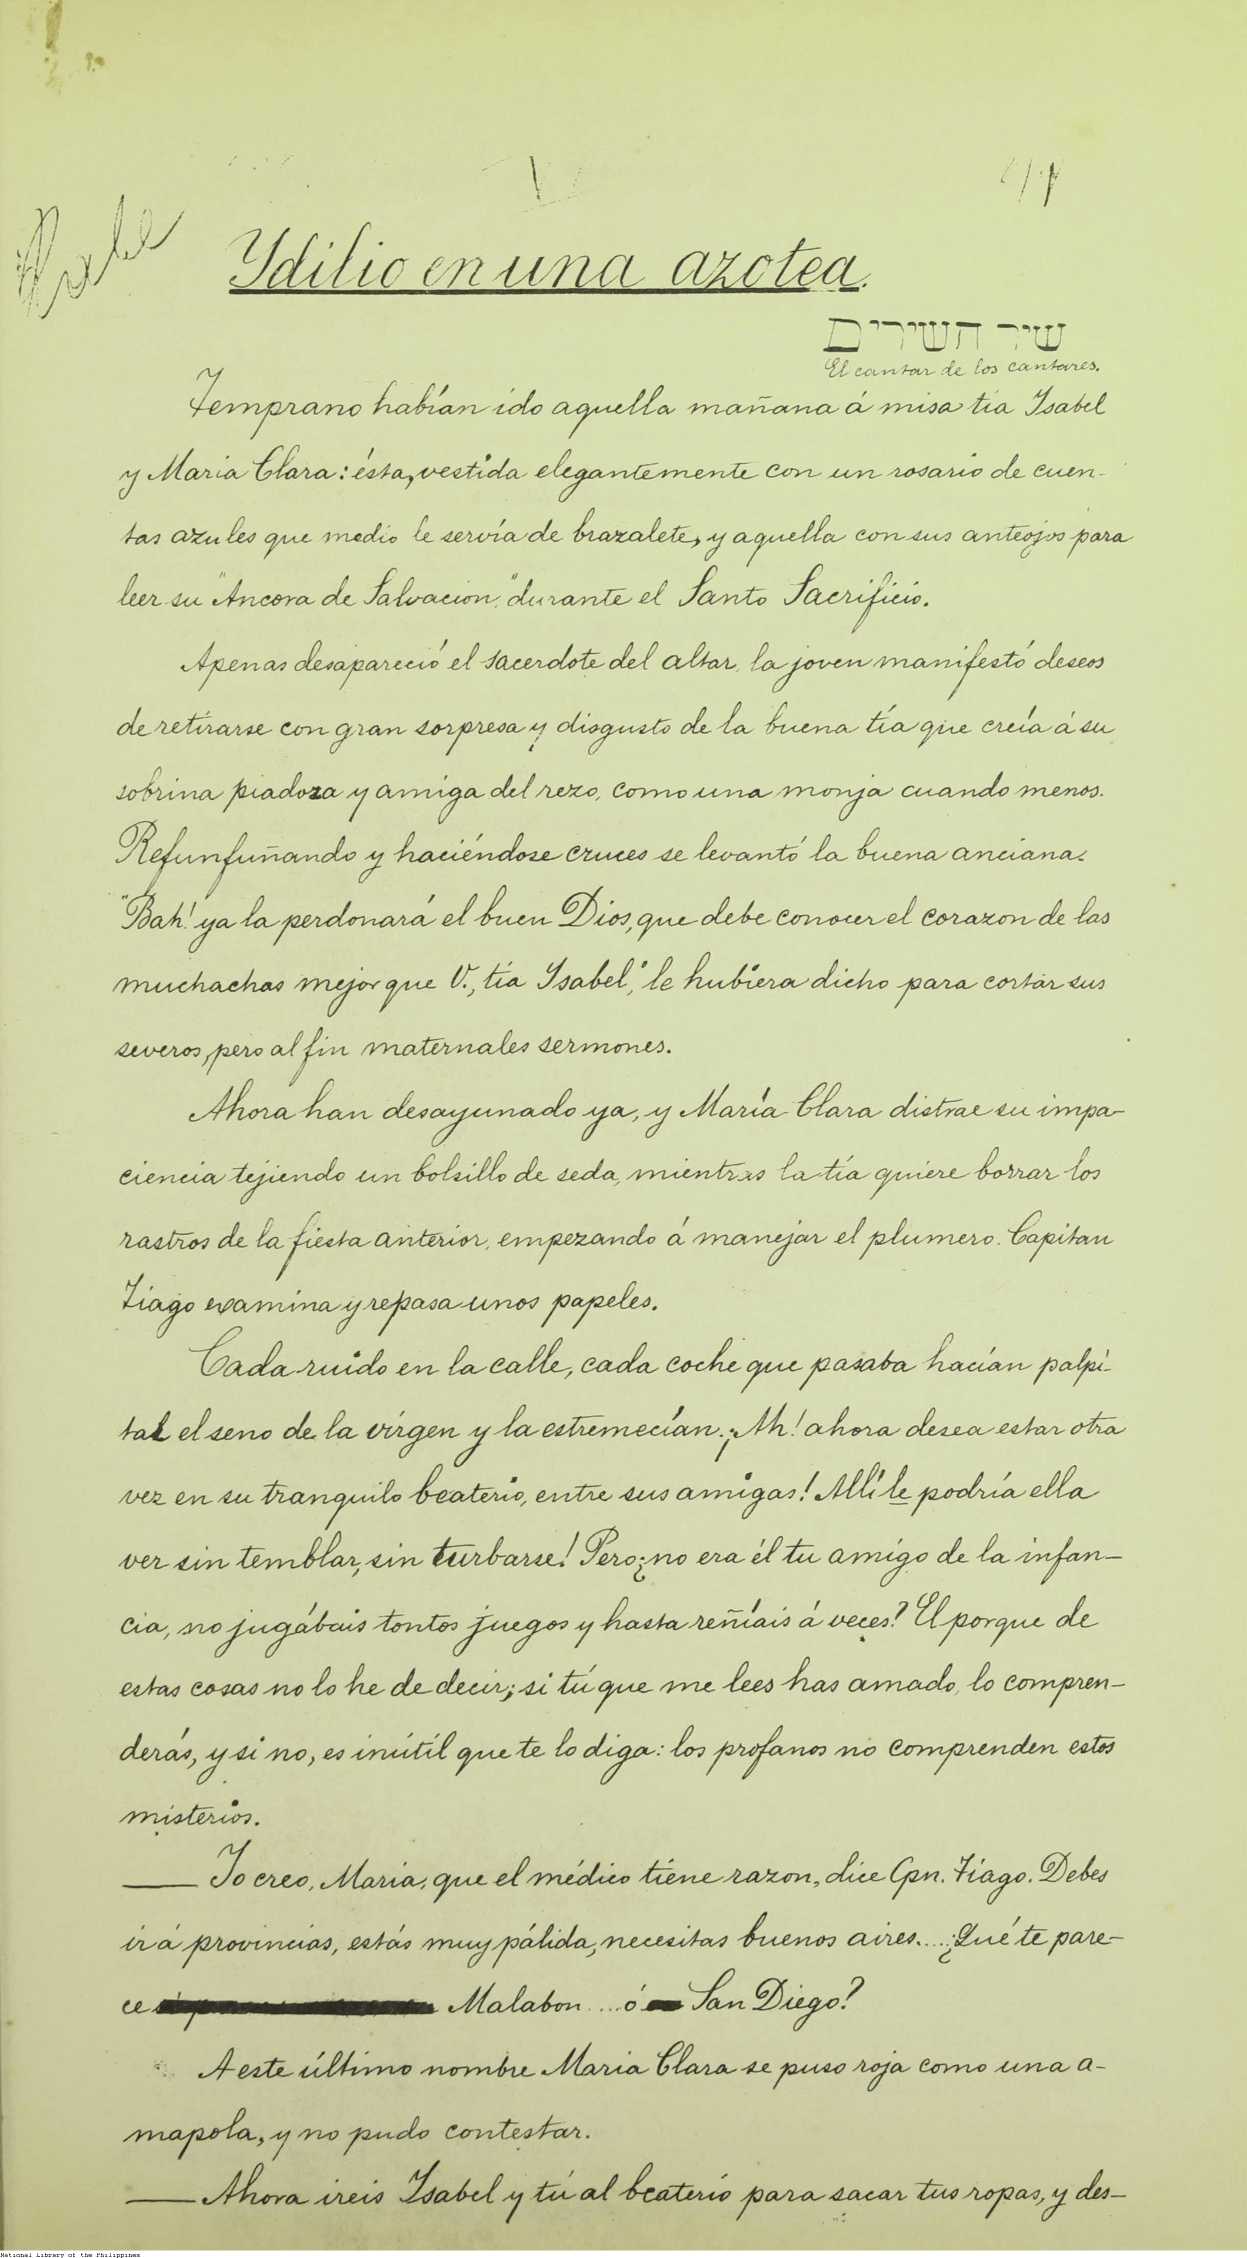 Ydilio en una azotea.
שיר השירים
El cantar de los cantares.
Temprano habían ido aquella mañana á misa tia Ysabel
y Maria Clara: ésta, vestida elegantemente con un rosario de cuen-
tas azules que medio le servía de brazalete, y aquella con sus anteojos para
leer su "Ancora de Salvacion," durante el Santo Sacrificio.
Apenas desapareció el sacerdote del altar, la joven manifestó deseos
de retirarse con gran sorpresa y disgusto de la buena tía que creía á su
sobrina piadosa y amiga del rezo, como una monja cuando menos.
Refunfuñando y haciéndose cruces se levantó la buena anciana.
"Bah! ya la perdonará el buen Dios, que debe conocer el corazon de las
muchachas mejor que V., tía Ysabel," le hubiera dicho para cortar sus
severos, pero al fin maternales sermones.
Ahora han desayunado ya, y María Clara distrae su impa-
ciencia tejiendo un bolsillo de seda, mientras la tía quiere borrar los
rastros de la fiesta anterior, empezando á manejar el plumero. Capitan
Tiago examina y repasa unos papeles.
Cada ruido en la calle, cada coche que pasaba hacían palpi-
tar el seno de la vírgen y la estremecían. ¡Ah! ahora desea estar otra
vez en su tranquilo beaterio, entre sus amigas! Allí le podría ella
ver sin temblar, sin turbarse! Pero ¿no era él tu amigo de la infan-
cia, no jugábais tontos juegos y hasta reñíais á veces? El porque de
estas cosas no lo he de decir; si tú que me lees has amado, lo compren-
derás, y si no, es inútil que te lo diga: los profanos no comprenden estos
misterios.
— Yo creo, Maria, que el médico tiene razon, dice Cpn. Tiago. Debes
ir á provincias, estás muy pálida, necesitas buenos aires.... ¿Qué te pare-
ce Malabon .... ó San Diego?
A este último nombre Maria Clara se puso roja como una a-
mapola, y no pudo contestar.
— Ahora ireis Ysabel y tú al beaterío para sacar tus ropas, y des-
National Library of the Philippines